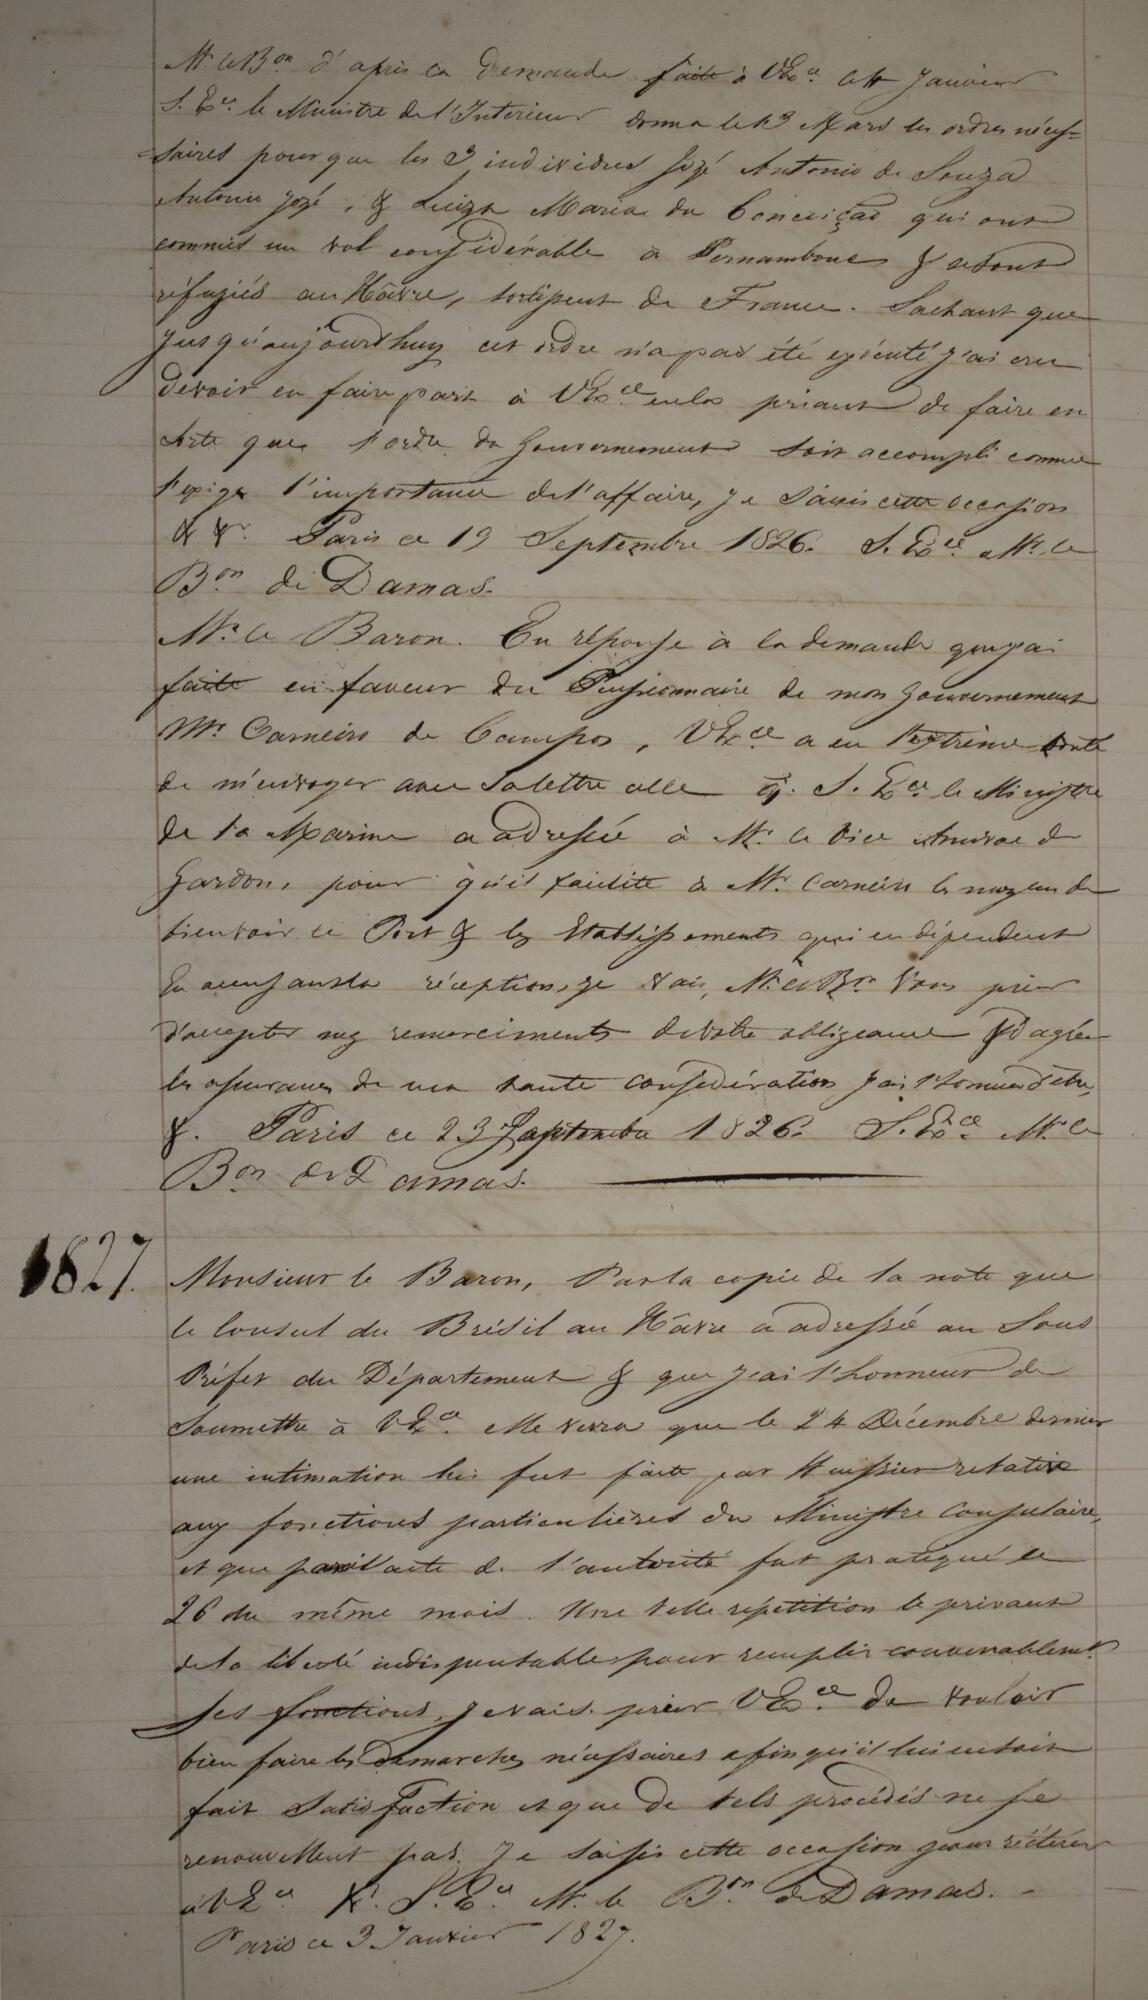 Mr le Bon d'après la demande faite à VExce le 4 Janvier
S. Exce le Ministre de l'Interieur donna le 13 Mars les ordres néces=
=saires pour que les 3 individus José Antonio de Souza
Antonio José, & Luiza Maria da Conceiçaõ qui ont
commis un vol considérable à Pernambouc & se sont
réfugiés au Hâvre, sortissent de France. Sachant que
jusqu'aujourd'huy cet ordre n'a pas été exécuté j'ai cru
devoir en faire part à VExce en la priant de faire en
sorte que l'ordre du Gouvernement soit accompli comme
l'exige l'importance de l'affaire, je saisis cette occasion
& &. Paris ce 19 Septembre 1826. S. Exce Mr le
Bon de Damas.
Mr le Baron. En réponse à la demande que j'ai
faite en faveur du Pensionnaire de mon Gouvernement
Mr Carneiro de Campos, VExce a eu l'extrême bonté
de m'envoyer avec sa lettre celle q. S. Exce le Ministre
de la Marine a adressée à Mr le Vice Amiral de
Gardon, pour qu'il facilite à Mr Carneiro les moyens de
bien voir ce Port & les Etablissements qui en dépendent
En accusant la réception, je vais, Mr le Bon Vous prier
d'accepter mes remerciments de votre obligeance & d'agréer
les assurances de ma haute considération j'ai l'honneur d'être,
&. Paris ce 23 Septembre 1826. S. Exce Mr le
Bon de Damas.
1827.
Monsieur le Baron, Par la copie de la note que
le Consul du Brésil au Hâvre a adressée au Sous
Préfet du Département & que j'ai l'honneur de
soumettre à VExce elle verra que le 24 Décembre dernier
une intimation lui fut faite par Huissier relative
aux fonctions particulières du Ministre Consulaire,
et que pareil acte de l'autorité fut pratiqué le
26 du même mois. Une telle répétition le privant
de la liberté indispensable pour remplir convenablemt
ses fonctions, je vais prier VExce de vouloir
bien faire les démarches nécessaires afin qu'il lui en soit
fait satisfaction et que de tels procédés ne se
renouvellent pas. Je saisis cette occasion pour réitérer
à VExce &. S. Exce Mr le Bon de Damas.
Paris ce 3 Janvier 1827.